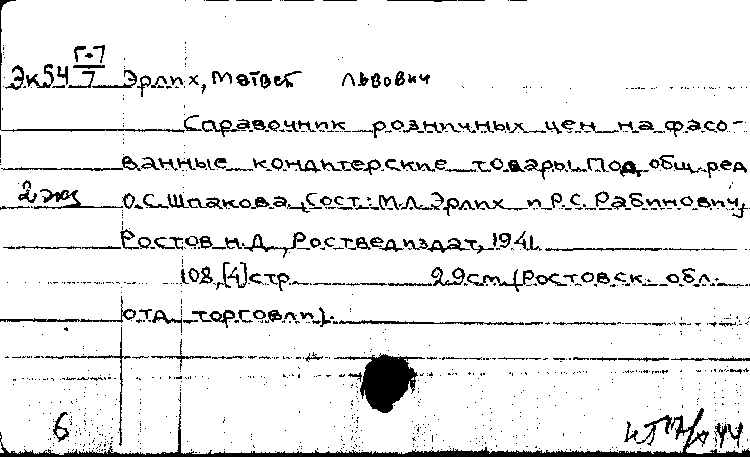 Эк54 Г-7/7 Эрлих, Матвей Львович
Справочник розничных цен на фасо-
ванные кондитерские товары. Под общ. ред
2 экз О.С. Шпакова, Сост.: М.Л. Эрлих и Р.С. Рабинович,
Ростов н.Д., Роствediздат, 1941.
108, [4] стр. 29см. (Ростовск. обл.
отд. торговли).
6